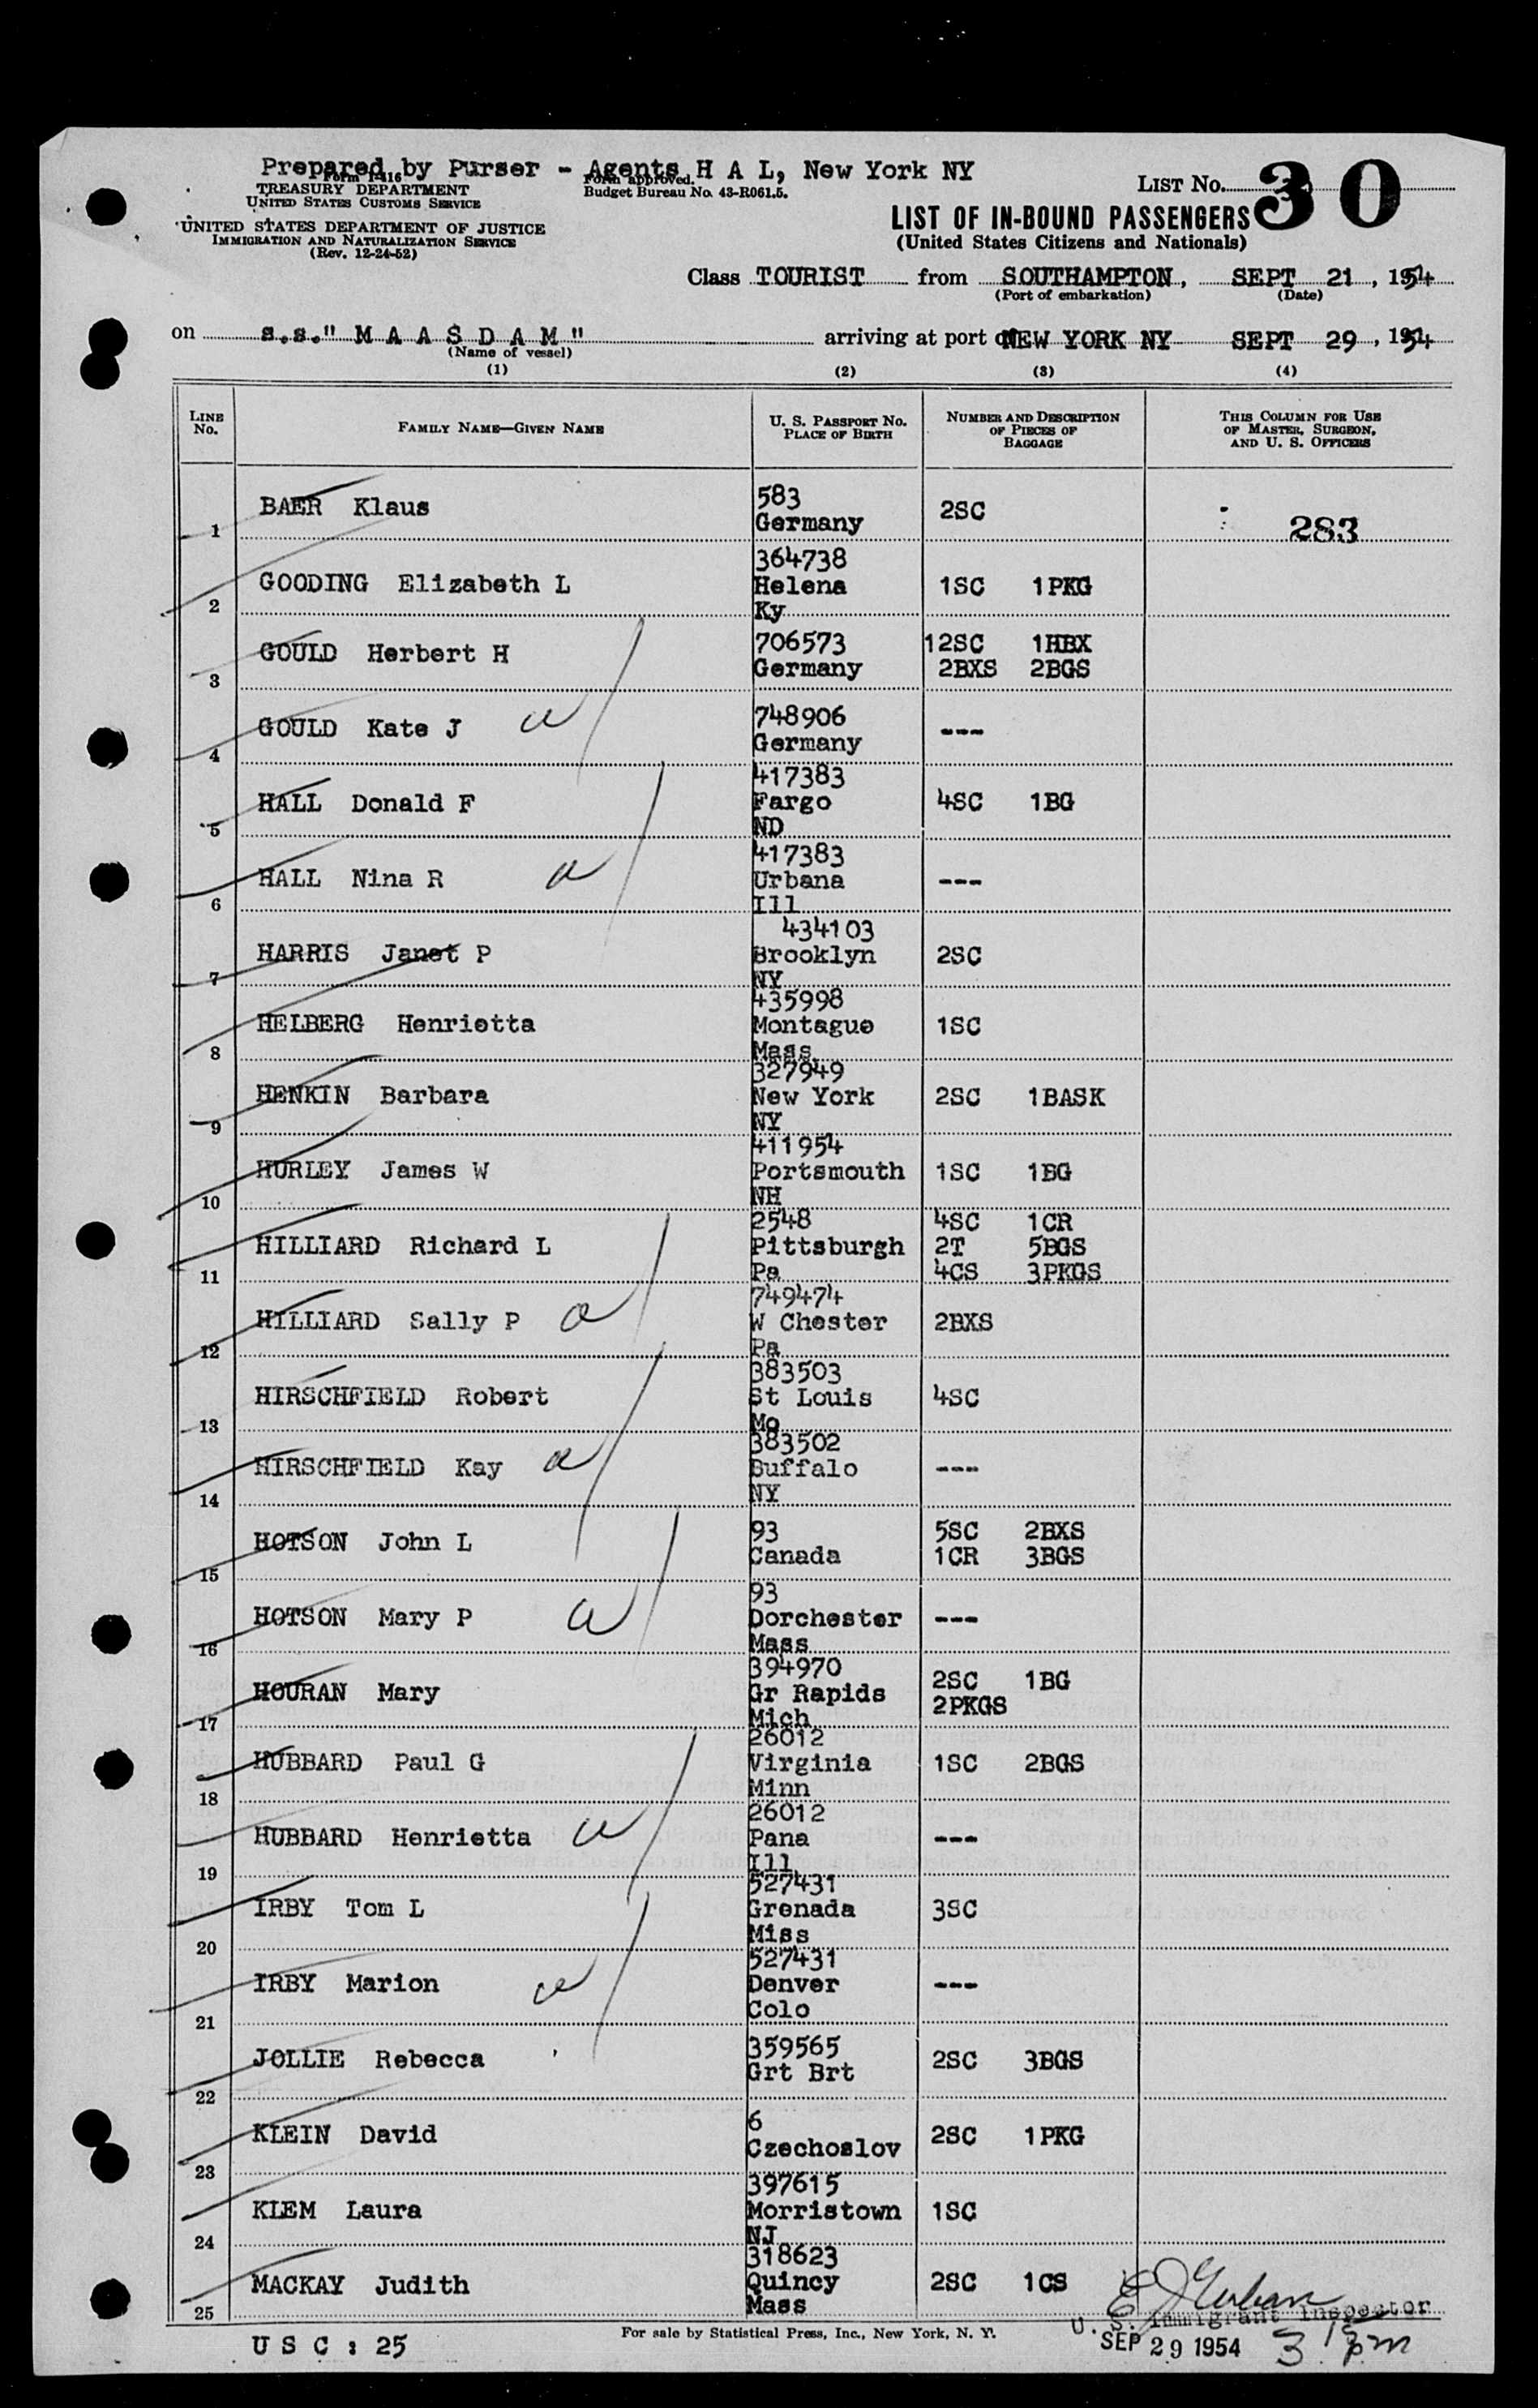 Prepared by Purser - Agents H A L, New York NY
Form I-416
Form approved.
TREASURY DEPARTMENT
Budget Bureau No. 43-R061.5.
UNITED STATES CUSTOMS SERVICE
LIST No. 30
UNITED STATES DEPARTMENT OF JUSTICE
IMMIGRATION AND NATURALIZATION SERVICE
(Rev. 12-24-52)
LIST OF IN-BOUND PASSENGERS
(United States Citizens and Nationals)
Class TOURIST from SOUTHAMPTON, SEPT 21, 1954
(Port of embarkation) (Date)
on s.s." M A A S D A M" arriving at port of NEW YORK NY SEPT 29, 1954
(Name of vessel)
(1) (2) (3) (4)
LINE No.
FAMILY NAME—GIVEN NAME
U. S. PASSPORT No.
PLACE OF BIRTH
NUMBER AND DESCRIPTION
OF PIECES OF
BAGGAGE
THIS COLUMN FOR USE
OF MASTER, SURGEON,
AND U. S. OFFICERS
583
1 BAER Klaus 2SC 283
Germany
364738
2 GOODING Elizabeth L Helena 1SC 1PKG
Ky
3 GOULD Herbert H 706573 12SC 1HBX
Germany 2BXS 2BGS
4 GOULD Kate J 748906 ---
Germany
417383
5 HALL Donald F Fargo 4SC 1BG
ND
417383
6 HALL Nina R Urbana ---
Ill
434103
7 HARRIS Janet P Brooklyn 2SC
NY
435998
8 HELBERG Henrietta Montague 1SC
Mass
327949
9 HENKIN Barbara New York 2SC 1BASK
NY
411954
10 HURLEY James W Portsmouth 1SC 1BG
NH
2548 4SC 1CR
11 HILLIARD Richard L Pittsburgh 2T 5BGS
Pa 4CS 3PKGS
749474
12 HILLIARD Sally P W Chester 2BXS
Pa
383503
13 HIRSCHFIELD Robert St Louis 4SC
Mo
383502
14 HIRSCHFIELD Kay Buffalo ---
NY
15 HOTSON John L 93 5SC 2BXS
Canada 1CR 3BGS
93
16 HOTSON Mary P Dorchester ---
Mass
394970 2SC 1BG
17 HOURAN Mary Gr Rapids 2PKGS
Mich
26012
18 HUBBARD Paul G Virginia 1SC 2BGS
Minn
26012
19 HUBBARD Henrietta Pana ---
Ill
527431
20 IRBY Tom L Grenada 3SC
Miss
527431
21 IRBY Marion Denver ---
Colo
359565
22 JOLLIE Rebecca Grt Brt 2SC 3BGS
6
23 KLEIN David Czechoslov 2SC 1PKG
397615
24 KLEM Laura Morristown 1SC
NJ
318623
25 MACKAY Judith Quincy 2SC 1CS
Mass
U. S. Immigrant Inspector
U S C : 25
For sale by Statistical Press, Inc., New York, N. Y.
SEP 29 1954